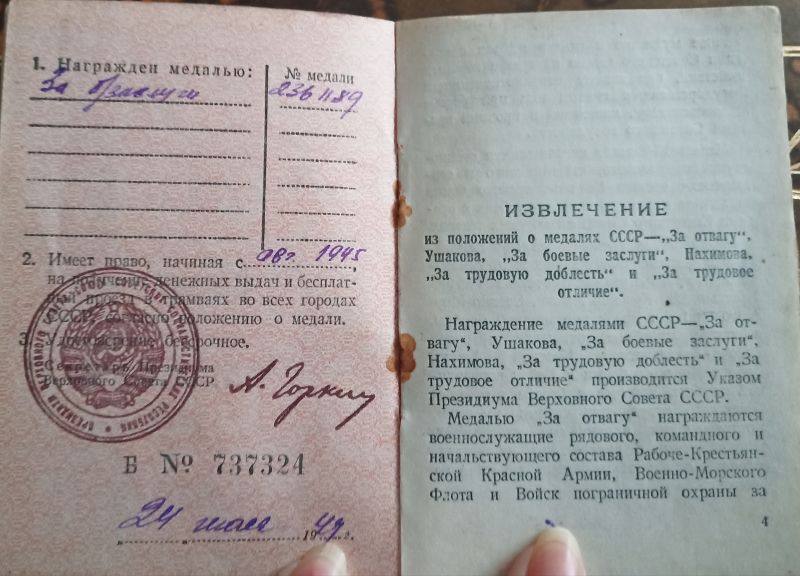 1. Награжден медалью:
№ медали
За
2361189
2. Имеет право, начиная с авг. 1945
на получение денежных выдач и бесплат-
ный проезд в трамваях во всех городах
СССР, согласно положению о медали.
3. Удостоверение бессрочное.
Секретарь Президиума
Верховного Совета СССР
А. Горкин
Б № 737324
24 мая 1949 г.
ИЗВЛЕЧЕНИЕ
из положений о медалях СССР—„За отвагу“,
Ушакова, „За боевые заслуги“, Нахимова,
„За трудовую доблесть“ и „За трудовое
отличие“.
Награждение медалями СССР—„За от-
вагу“, Ушакова, „За боевые заслуги“,
Нахимова, „За трудовую доблесть“ и „За
трудовое отличие“ производится Указом
Президиума Верховного Совета СССР.
Медалью „За отвагу“ награждаются
военнослужащие рядового, командного и
начальствующего состава Рабоче-Крестьян-
ской Красной Армии, Военно-Морского
Флота и Войск пограничной охраны за
4